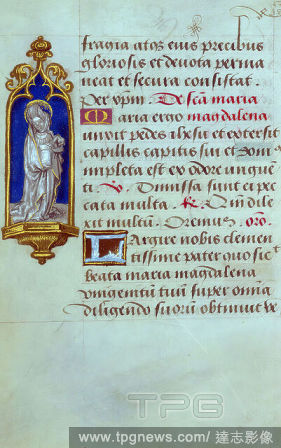 fragia atq3 eius precibus
gloriosis et devota perma
neat et secura consistat.
Per xpm. De scā maria
Maria ergo magdalena
unxit pedes ihesu et extersit
capillis capitis sui et domꝰ
impleta est ex odore unguē
ti. V. Dimissa sunt ei pec
cata multa. R. Qm̄ dile
xit multū. Oremus. orō.
Largire nobis clemen
tissime pater quo sicᵗ
beata maria magdalena
unigenitum tuū super omīa
diligendo suorū obtinuit ve
TPG
www.tpgnews.com/達志影像